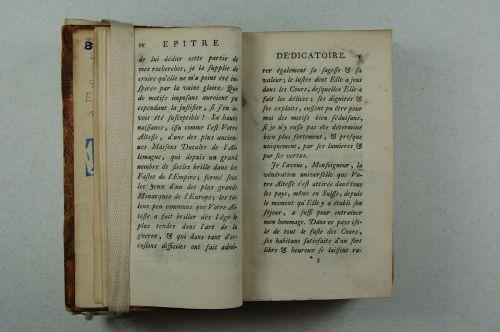 iv EPITRE
de lui dédier cette partie de
mes recherches, je la supplie de
croire qu'elle ne m'a point été ins-
pirée par la vaine gloire. Que
de motifs imposans auroient pu
cependant la justifier, si j'en a-
vois été susceptible! Sa haute
naissance, issu comme l'est Votre
Altesse, d'une des plus ancien-
nes Maisons Ducales de l'Al-
lemagne, qui depuis un grand
nombre de siecles brille dans les
Fastes de l'Empire; formé sous
les yeux d'un des plus grands
Monarques de l'Europe; les ta-
lens peu communs que Votre Al-
tesse a fait briller dès l'âge le
plus tendre dans l'art de la
guerre, & qui dans tant d'oc-
casions difficiles ont fait admi-
DÉDICATOIRE. v
rer également sa sagesse & sa
valeur; le lustre dont Elle a joui
dans les Cours, desquelles Elle a
fait les délices; ses dignités &
ses exploits, eussent pu être pour
moi des motifs bien séduisans,
si je n'y eusse pas été déterminé
bien plus fortement, & presque
uniquement, par ses lumieres &
par ses vertus.
Je l'avoue, Monseigneur, la
vénération universelle que Vo-
tre Altesse s'est attirée dans tous
les pays, même en Suisse, depuis
le moment qu'Elle y a établi son
séjour, a suffi pour entraîner
mon hommage. Dans ce pays iso-
lé de tout le faste des Cours,
ses habitans satisfaits d'un sort
libre & heureux se laissent ra-
* 3